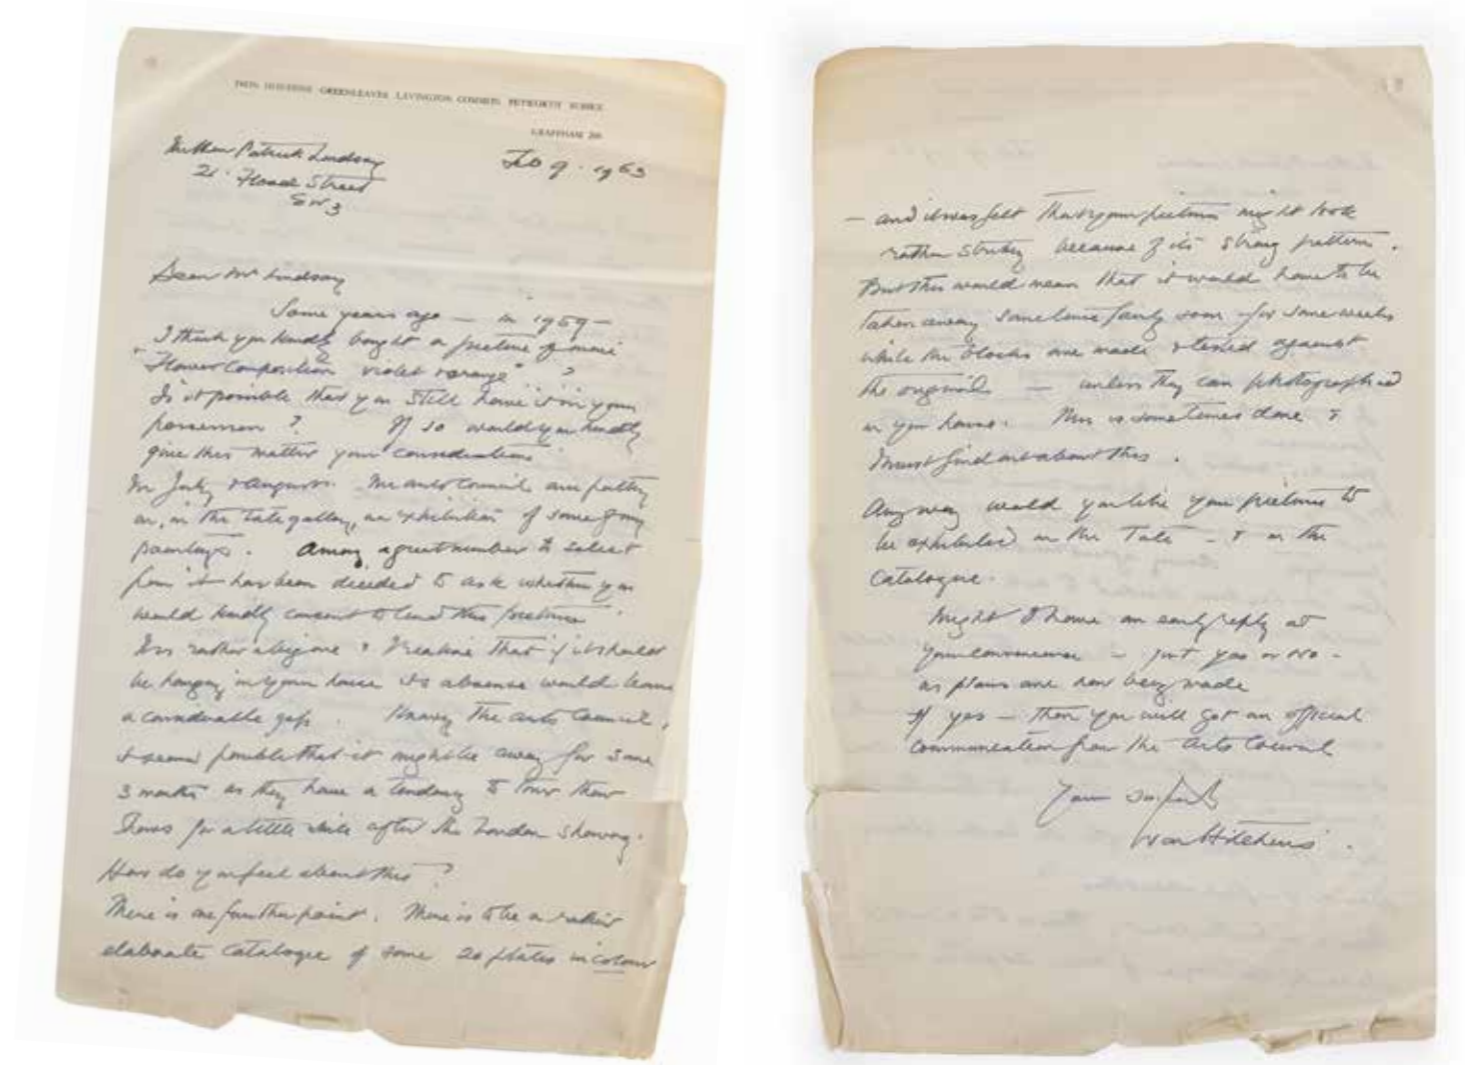 IVON HITCHENS GREENLEAVES LAVINGTON COMMON PETWORTH SUSSEX
GRAFFHAM 
The Hon Patrick Lindsay
21. Flood Street
SW3
Feb 9. 1963
Dear Mr Lindsay
Some years ago — in 1959 —
I think you kindly bought a picture of mine
"Flower Composition violet & orange" . . ?
Is it possible that you still have it in your
possession ? If so would you kindly
give this matter your consideration
In July & August. The Arts Council are putting
on, in the Tate gallery, an exhibition of some of my
paintings. Among a great number to select
from it has been decided to ask whether you
would kindly consent to lend this picture.
It is rather a big one & I realise that if it should
be hanging in your house its absence would leave
a considerable gap. Knowing the Arts Council,
it seems possible that it might be away for some
3 months as they have a tendency to tour their
shows for a little while after the London showing.
How do you feel about this ?
There is one further point. There is to be a rather
elaborate catalogue of some 20 plates in colour
— and it was felt that your picture might look
rather striking because of its strong pattern.
But this would mean that it would have to be
taken away sometime fairly soon for some weeks
while the blocks are made & tested against
the original — unless they can photographed
in your house. This is sometimes done &
I must find out about this.
Anyway would you like your picture to
be exhibited in the Tate — & in the
Catalogue.
Might I have an early reply at
your convenience — just yes or no —
as plans are now being made
If yes — then you will get an official
communication from the Arts Council
Yours sincerely
Ivon Hitchens.